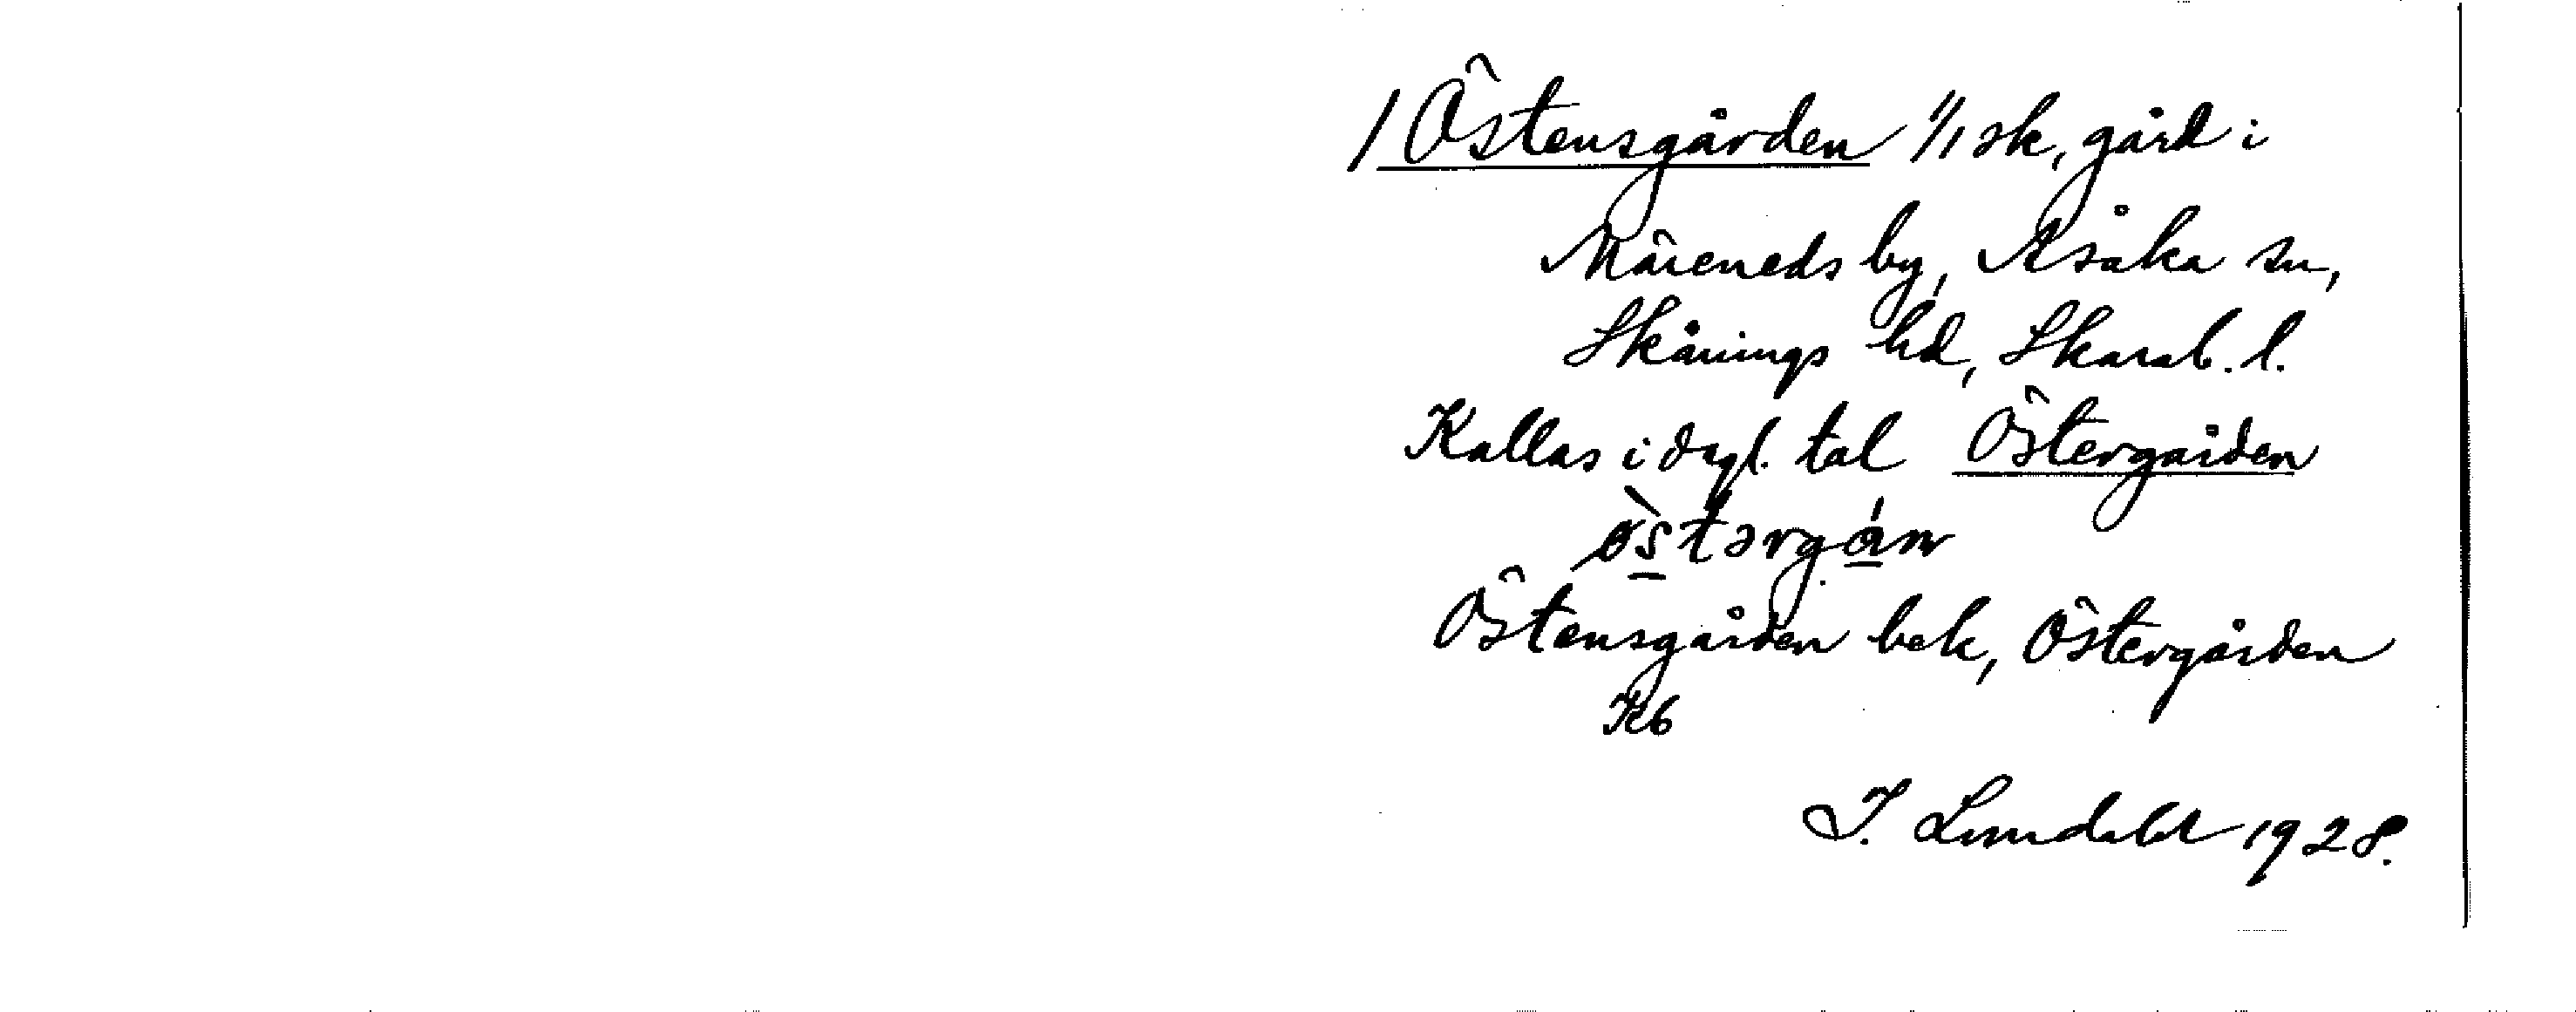 / Östensgården 1/1 sk, gård i
Märeneds by, Åsaka sn,
Skånings hd, Skarab. l.
Kallas i dagl. tal Östergården
östərgán
Östensgården bek, Östergården
Kb
J. Lundahl 1928.